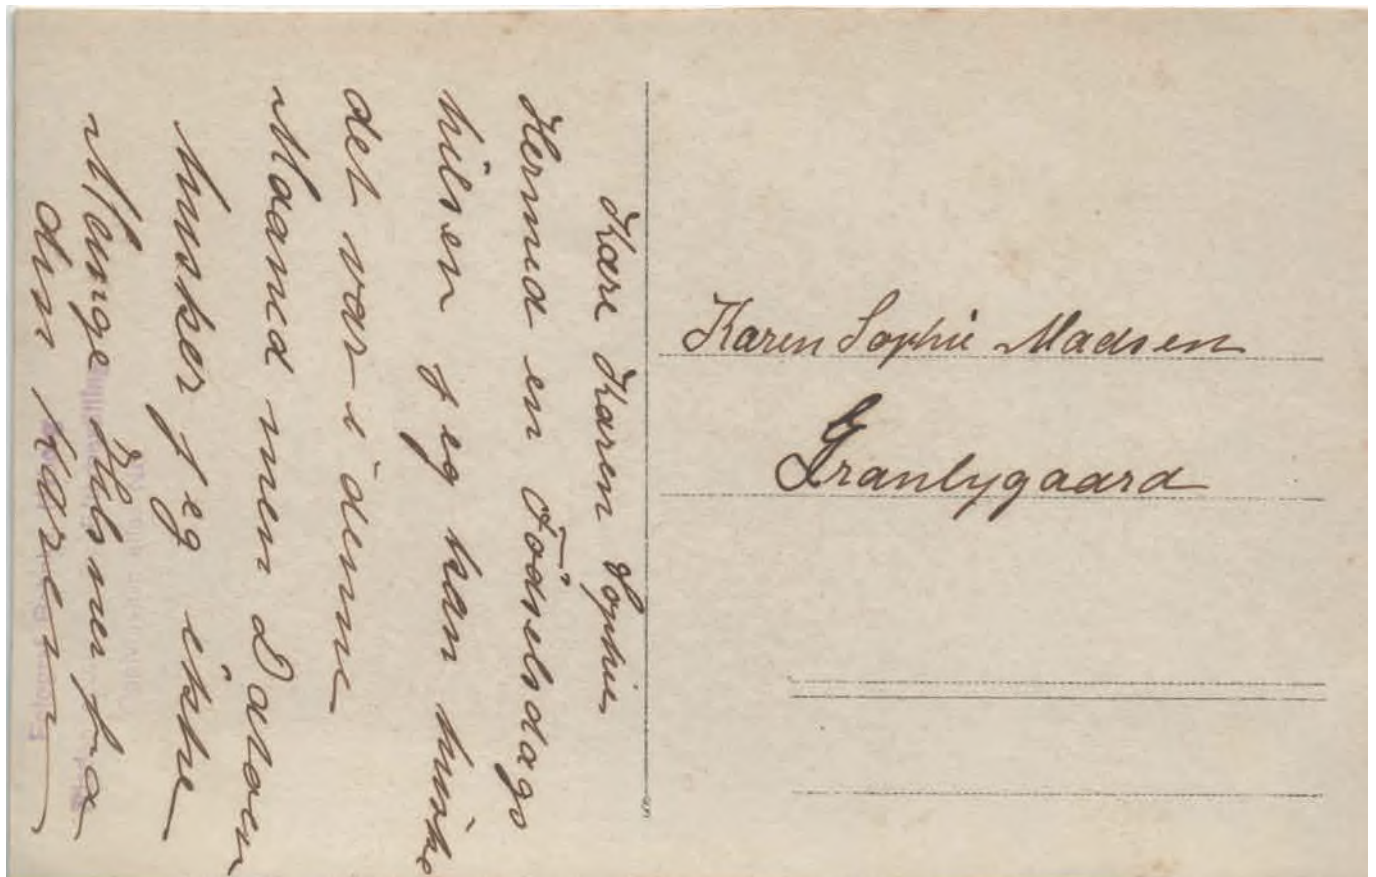 Kære Karen Sophie,
Hermed en Fødselsdags
hilsen jeg kan huske
det var i denne
Maaned men Datoen
husker jeg ikke
Mange Hilsner fra
din Karen
Karen Sophie Madsen
Granlygaard